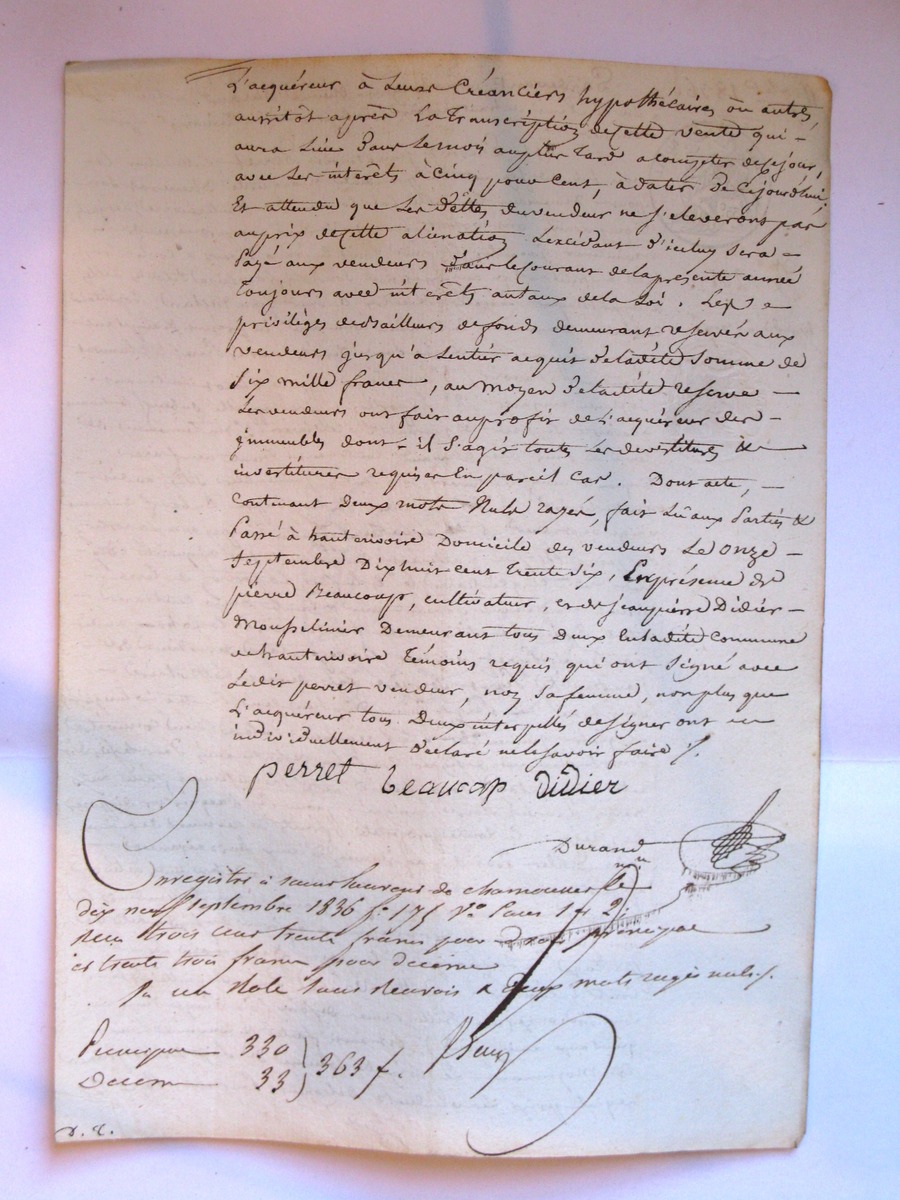 L'acquéreur à Leurs Créanciers hypothécaires ou autres
aussitôt après La Transcription de Cette vente qui -
aura Lieu dans le mois au plus Tard a compter de ce jour,
avec Les intérêts à Cinq pour Cent, à dater De Cejourd'hui.
Et attendu que Les dettes du vendeur ne s'eleveront pas
au prix de Cette alienation L'excédant d'iceluy Sera -
Payé aux vendeurs dans le Courant de la presente année
Toujours avec intérêts au taux de la Loi. Les
privilèges de Bailleurs de fonds demeurant reservés aux
vendeurs jusqu'a L'entier acquit de ladite Somme de
Six mille francs, au moyen de ladite reserve -
Les vendeurs ont fait au profit de L'acquéreur des -
immeubles dont il S'agit toutes Les devestitures &
investitures requises En pareil Cas. Dont acte, -
Contenant Deux mots Nuls rayés, fait Lu aux Parties &
Passé à hauterivoire Domicile des vendeurs Le onze -
Septembre Dix huit cent Trente Six, En présence de
pierre Beaucoup, cultivateur, et de jean pierre Didier -
Mousselinier Demeurant tous deux En ladite Commune
de hauterivoire Témoins requis qui ont Signé avec
Ledit perret vendeur, non Sa femme, non plus que
L'acquéreur tous Deux interpellés de Signer ont
individuellement déclaré ne le Savoir faire /.
perret beaucoup didier
Durand
nre
Enregistré à Saint Laurent de chamousset le
dix neuf Septembre 1836 f° 175 V° Cases 1 et 2
Reçu trois cens trente francs pour Droit principal
et trente trois francs pour decime
un Role Sans Renvois & Deux mots rayés nuls /.
Principal 330
363 f.
Decime 33